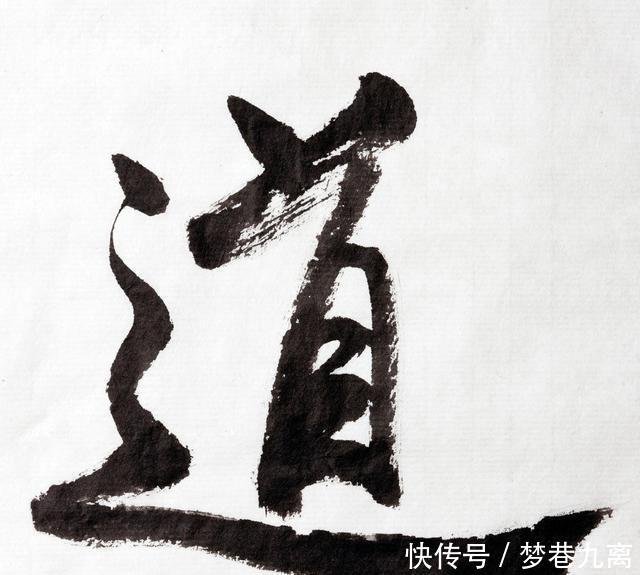 道
快传号 / 梦巷九离